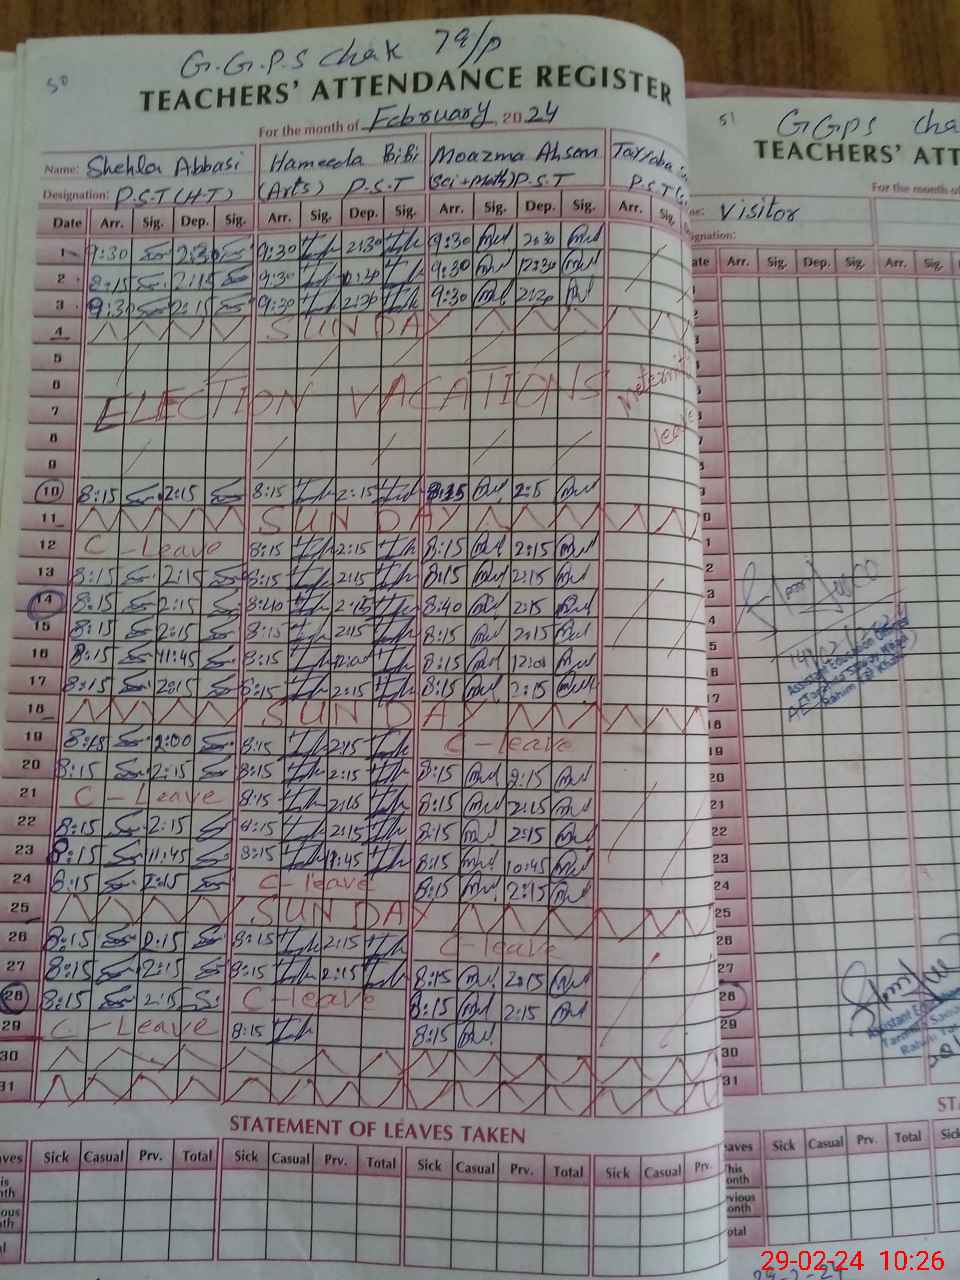 50
G.G.P.S Chak 79/P
TEACHERS' ATTENDANCE REGISTER
For the month of February, 2024
Name: Shehla Abbasi Hameeda BiBi Moazma Ahsan
Designation: P.S.T (H-T) (Arts) P.S.T (Sci + Math) P.S.T P.S.T
Date Arr. Sig. Dep. Sig. Arr. Sig. Dep. Sig. Arr. Sig. Dep. Sig. Arr. Sig.
1 9:30 2:30 9:30 2:30 9:30 2:30
2 8:15 2:15 9:30 9:30 12:30
3 9:30 2:15 9:30 2:30 9:30 2:30
4 SUNDAY
5
6
7 ELECTION VACATIONS
leave
8
9
10 8:15 2:15 8:15 2:15 8:15 2:15
11 SUNDAY
12 C-Leave 8:15 2:15 8:15 2:15
13 8:15 2:15 8:15 2:15 8:15 2:15
14 8:15 2:15 8:40 2:15 8:40 2:15
15 8:15 2:15 8:15 2:15 8:15 2:15
16 8:15 11:45 8:15 12:00 8:15 12:00
17 8:15 2:15 8:15 2:15 8:15 2:15
18 SUNDAY
19 8:15 2:00 8:15 2:15 C-leave
20 8:15 2:15 8:15 2:15 8:15 2:15
21 C-Leave 8:15 2:15 8:15 2:15
22 8:15 2:15 8:15 2:15 8:15 2:15
23 8:15 11:45 8:15 11:45 8:15 10:45
24 8:15 2:15 C-leave 8:15 2:15
25 SUNDAY
26 8:15 2:15 8:15 2:15 C-leave
27 8:15 2:15 8:15 2:15 8:15 2:15
28 8:15 2:15 C-leave 8:15 2:15
29 C-Leave 8:15 8:15
30
31
STATEMENT OF LEAVES TAKEN
Sick Casual Prv. Total Sick Casual Prv. Total Sick Casual Prv. Total Sick Casual Prv.
51
GGPS Cha
TEACHERS' ATT
For the month of
Visitor
Arr. Sig. Dep. Sig. Arr. Sig.
Assistant Education Officer
Sick Casual Prv. Total Sick
29-02-24 10:26